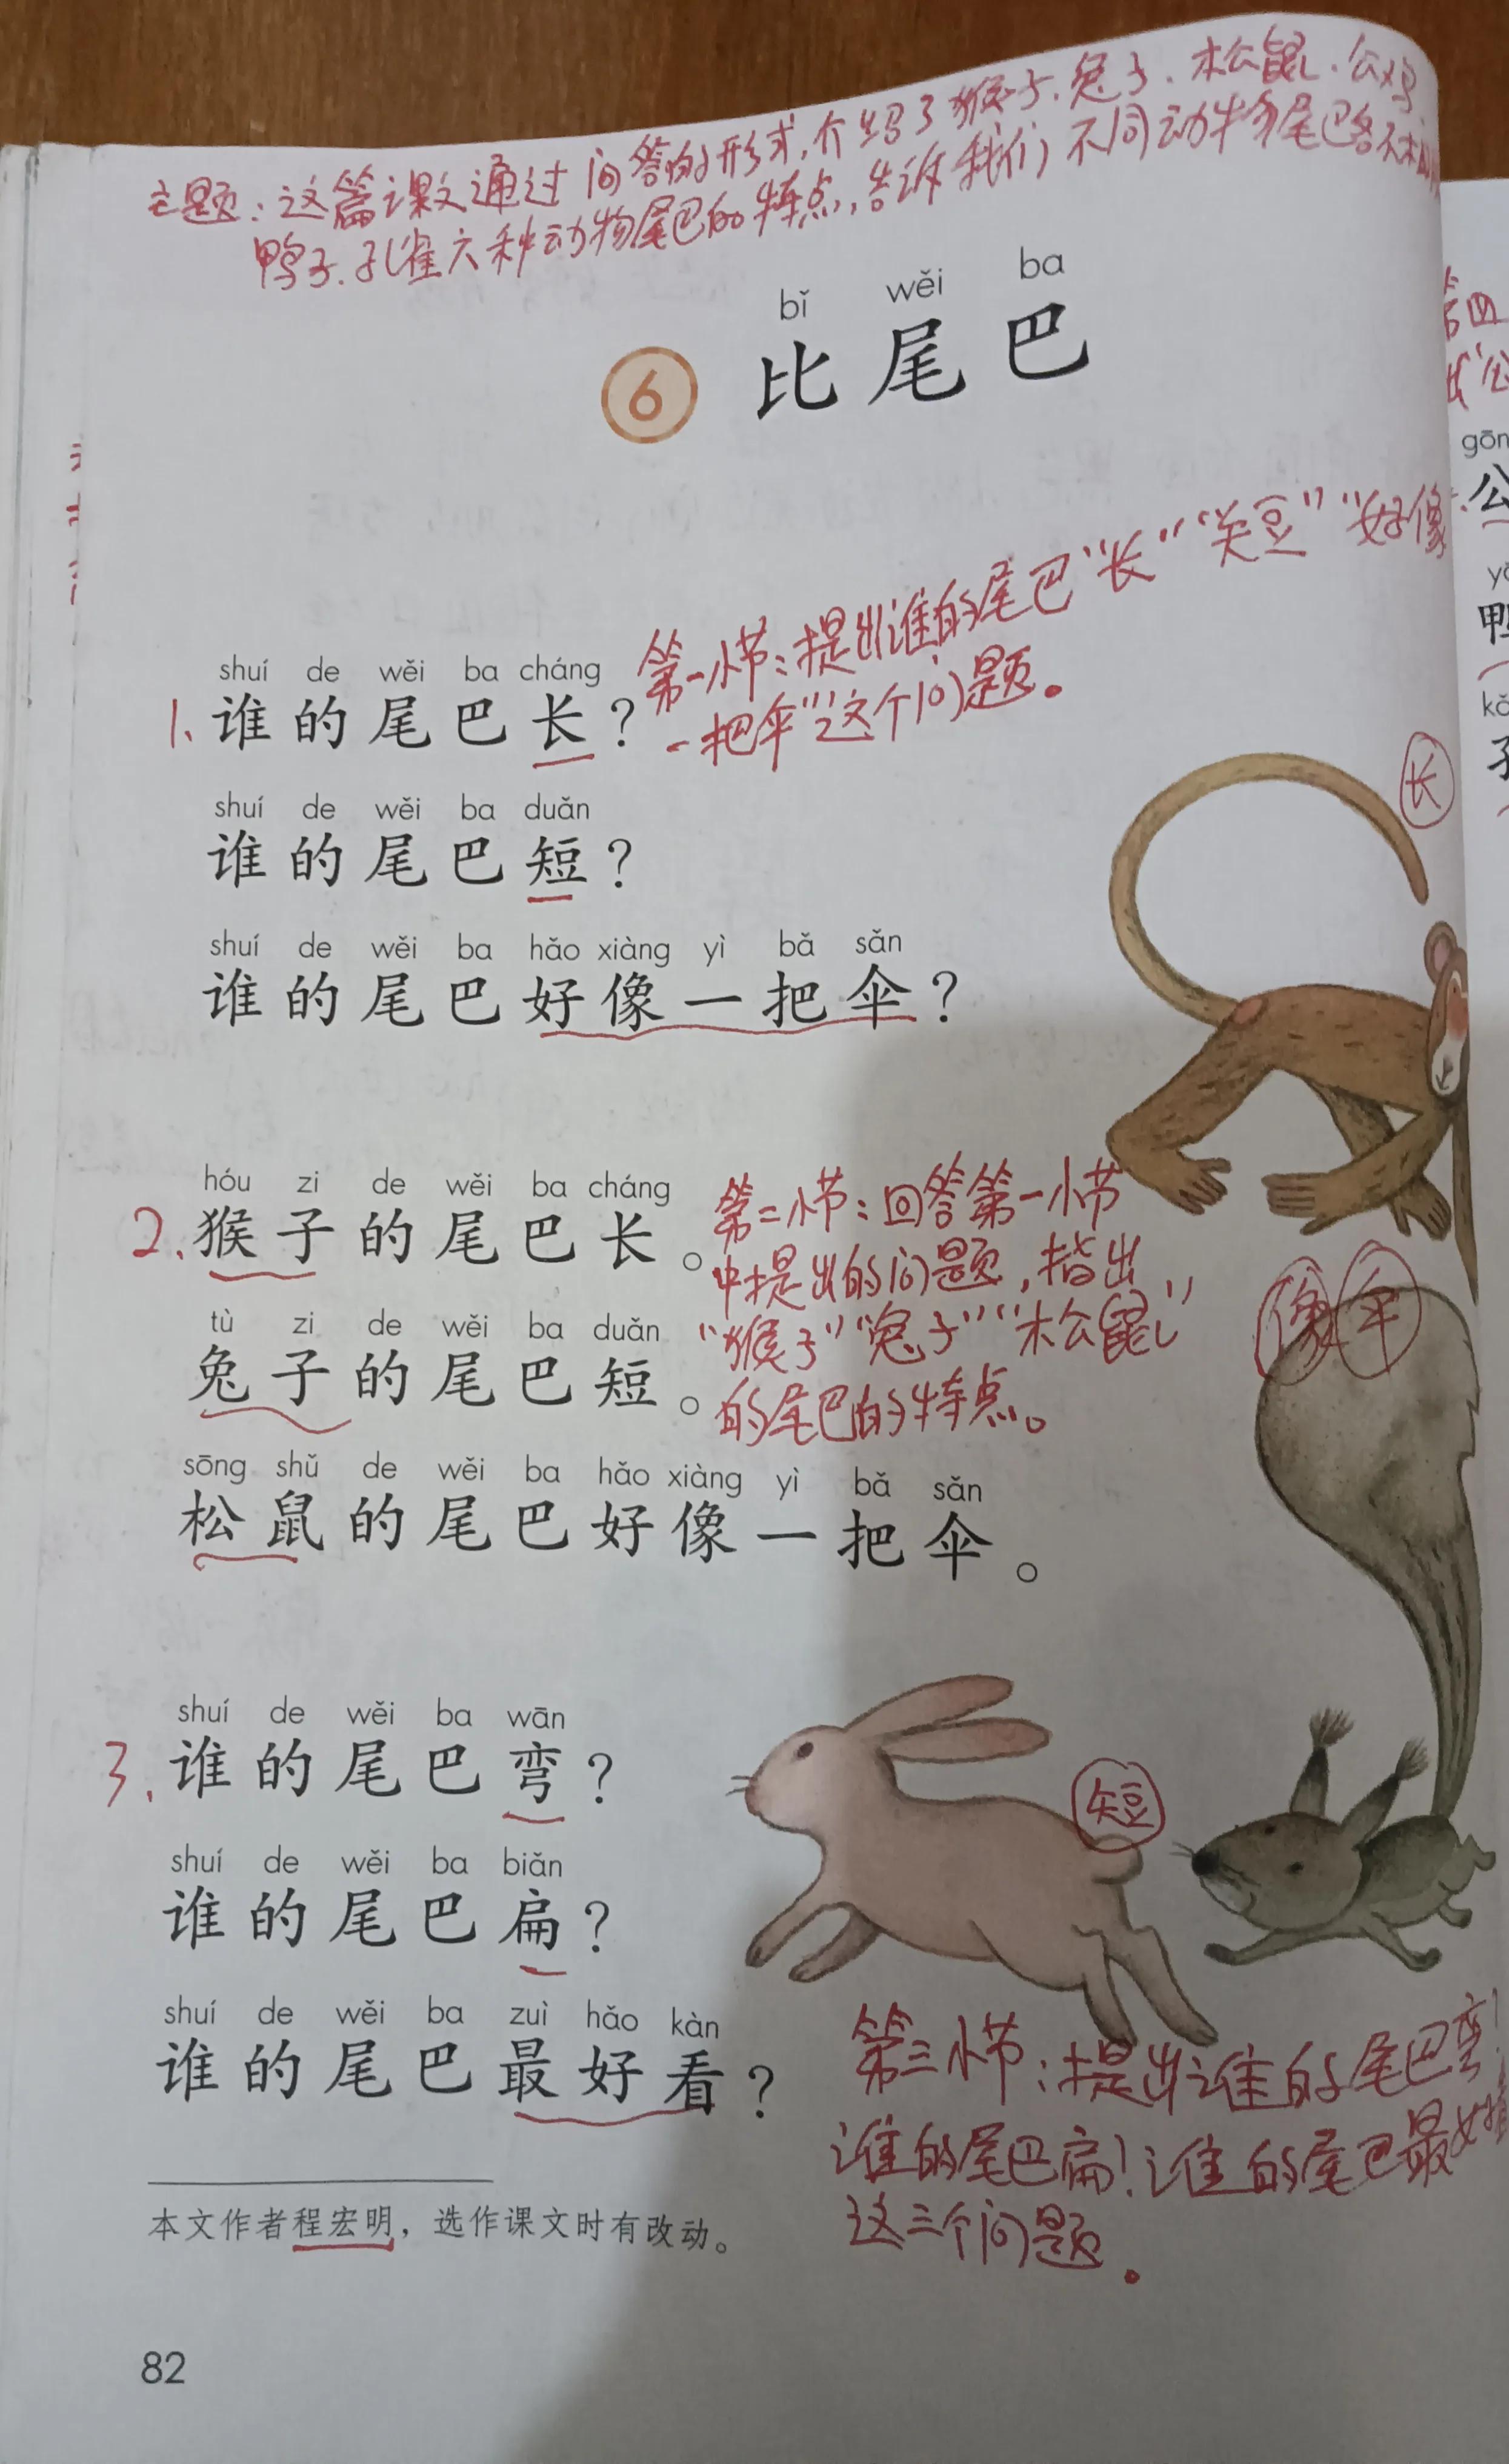 主题：这篇课文通过问答的形式，介绍了猴子、兔子、松鼠、公鸡、
鸭子、孔雀六种动物尾巴的特点，告诉我们不同动物尾巴各不相同
bǐ wěi ba
6 比尾巴
第一小节：提出谁的尾巴“长”“短”“好像
一把伞”这个问题。
shuí de wěi ba cháng
1、谁的尾巴长？
shuí de wěi ba duǎn
谁的尾巴短？
shuí de wěi ba hǎo xiàng yì bǎ sǎn
谁的尾巴好像一把伞？
长
hóu zi de wěi ba cháng
2、猴子的尾巴长。
tù zi de wěi ba duǎn
兔子的尾巴短。
sōng shǔ de wěi ba hǎo xiàng yì bǎ sǎn
松鼠的尾巴好像一把伞。
第二小节：回答第一小节
中提出的问题，指出
“猴子”“兔子”“松鼠”
的尾巴的特点。
像伞
shuí de wěi ba wān
3、谁的尾巴弯？
shuí de wěi ba biǎn
谁的尾巴扁？
shuí de wěi ba zuì hǎo kàn
谁的尾巴最好看？
短
第三小节：提出谁的尾巴弯！
谁的尾巴扁！谁的尾巴最好
这三个问题。
本文作者程宏明，选作课文时有改动。
82
gōn
公
鸭